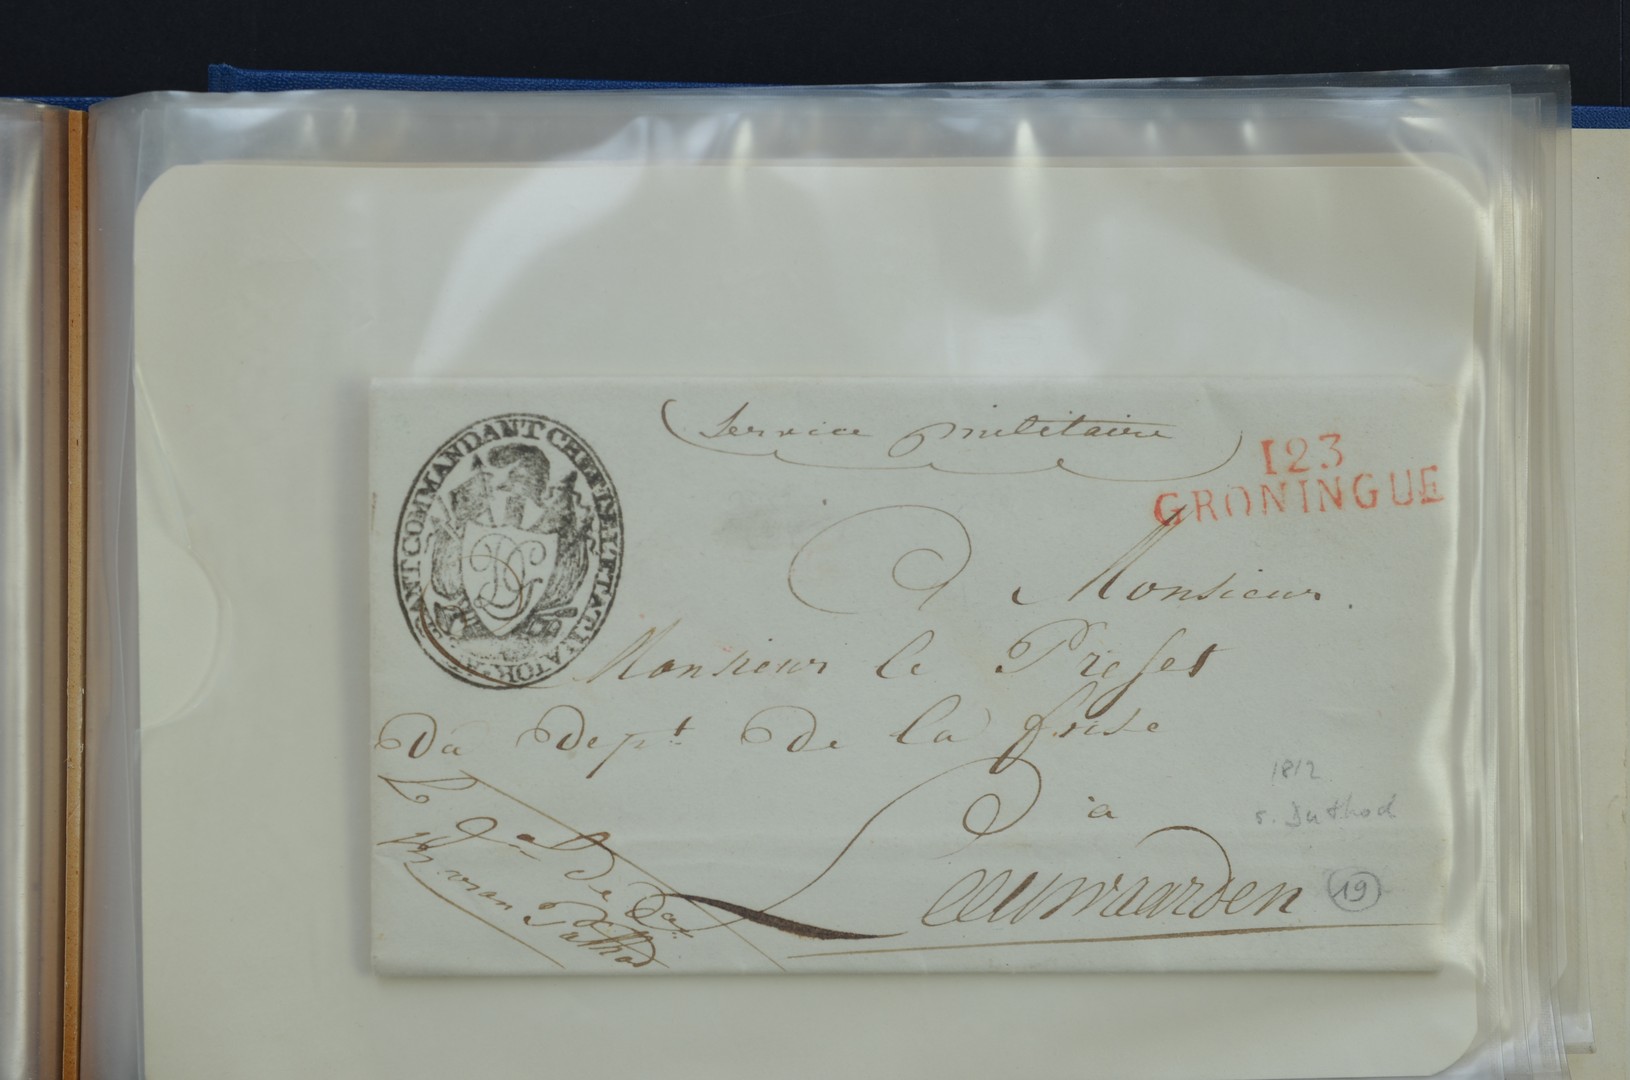 Service militaire
123
GRONINGUE
ANT COMMANDANT CHEF DE L'ETAT MAJOR
DG
A Monsieur
Monsieur le Préfet
Du Dept. De la frise
à
Leeuwaarden
1812
s. Duthod
19
Le
De